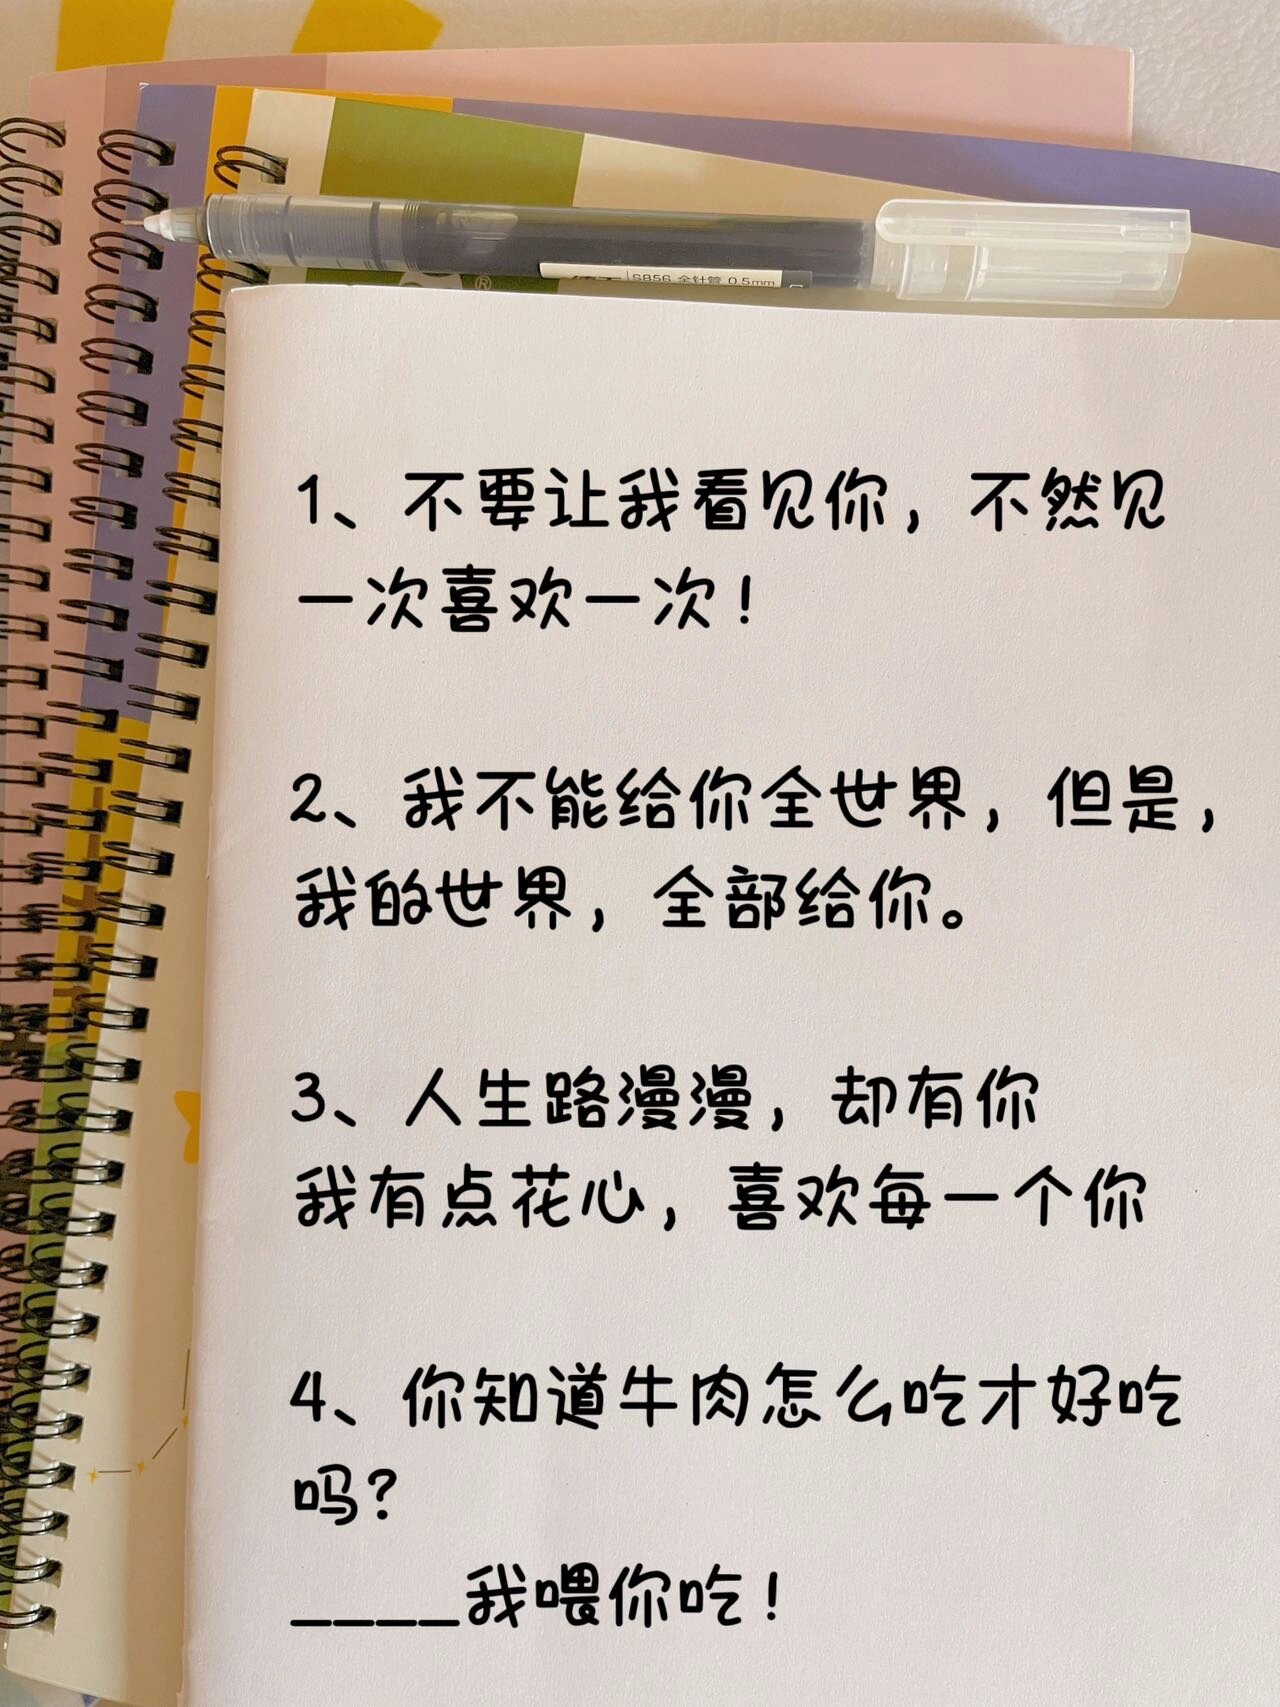 ®
S856 全针管 0.5mm
1、不要让我看见你，不然见
一次喜欢一次！
2、我不能给你全世界，但是，
我的世界，全部给你。
3、人生路漫漫，却有你
我有点花心，喜欢每一个你
4、你知道牛肉怎么吃才好吃
吗？
____我喂你吃！